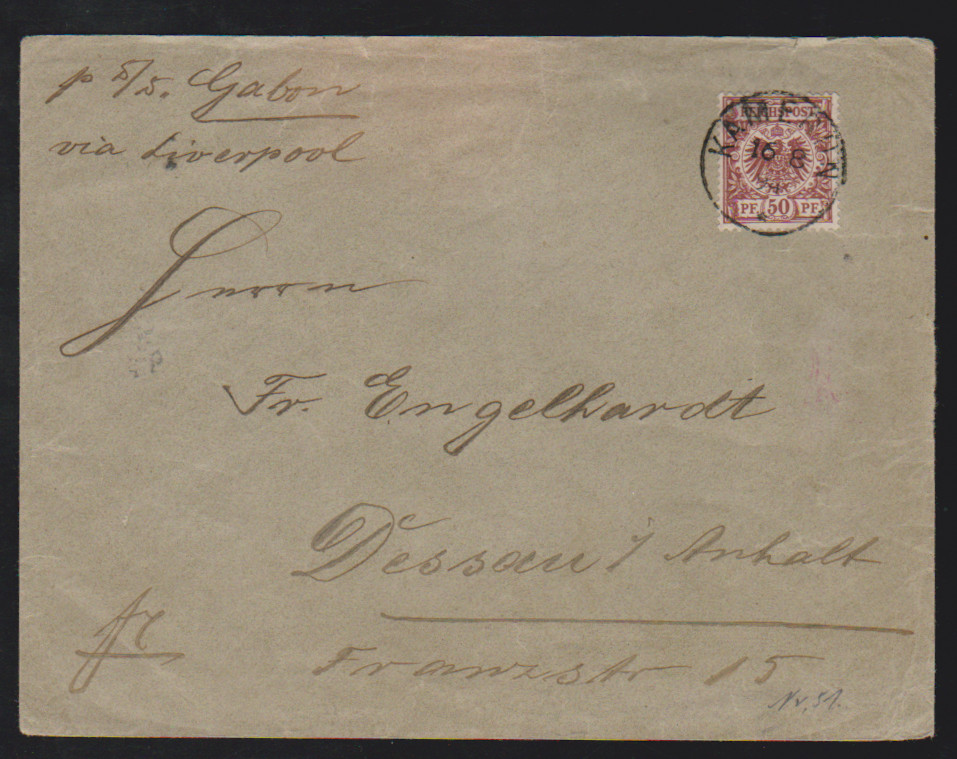 p S/S. Gabon
via Liverpool
REICHSPOST
KAMERUN
16 8
PF 50 PF
Herrn
Fr. Engelhardt
Dessau i/ Anhalt
fr
Franzstr 15